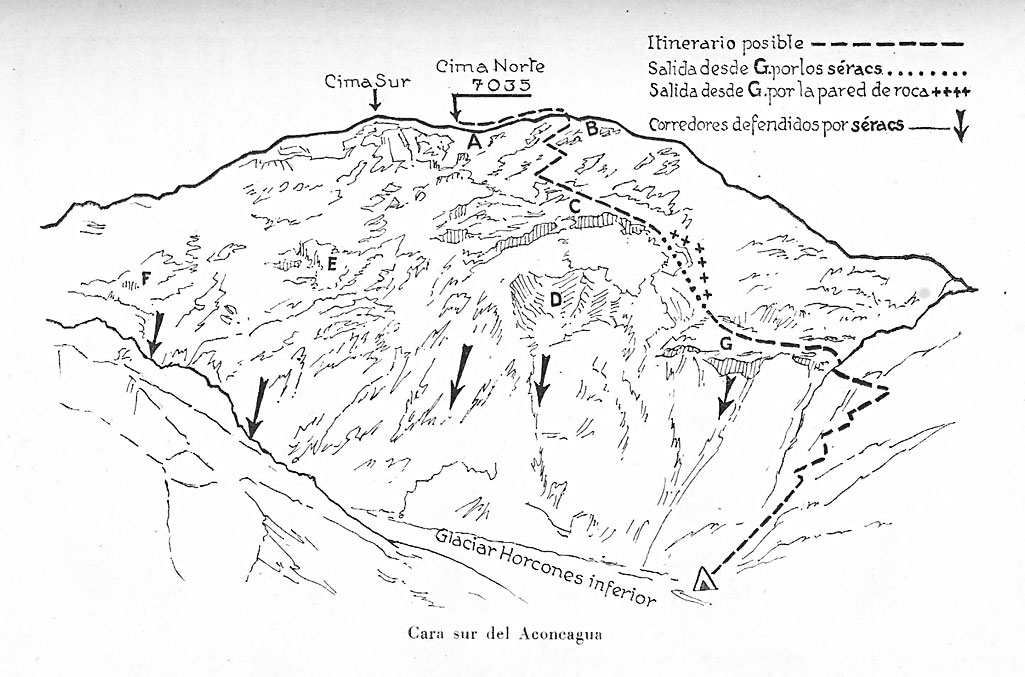 Itinerario posible
Salida desde G.por los séracs
Salida desde G.por la pared de roca
Corredores defendidos por séracs
Cima Sur
Cima Norte
7035
A
B
C
F
E
D
G
Glaciar Horcones inferior
Cara sur del Aconcagua